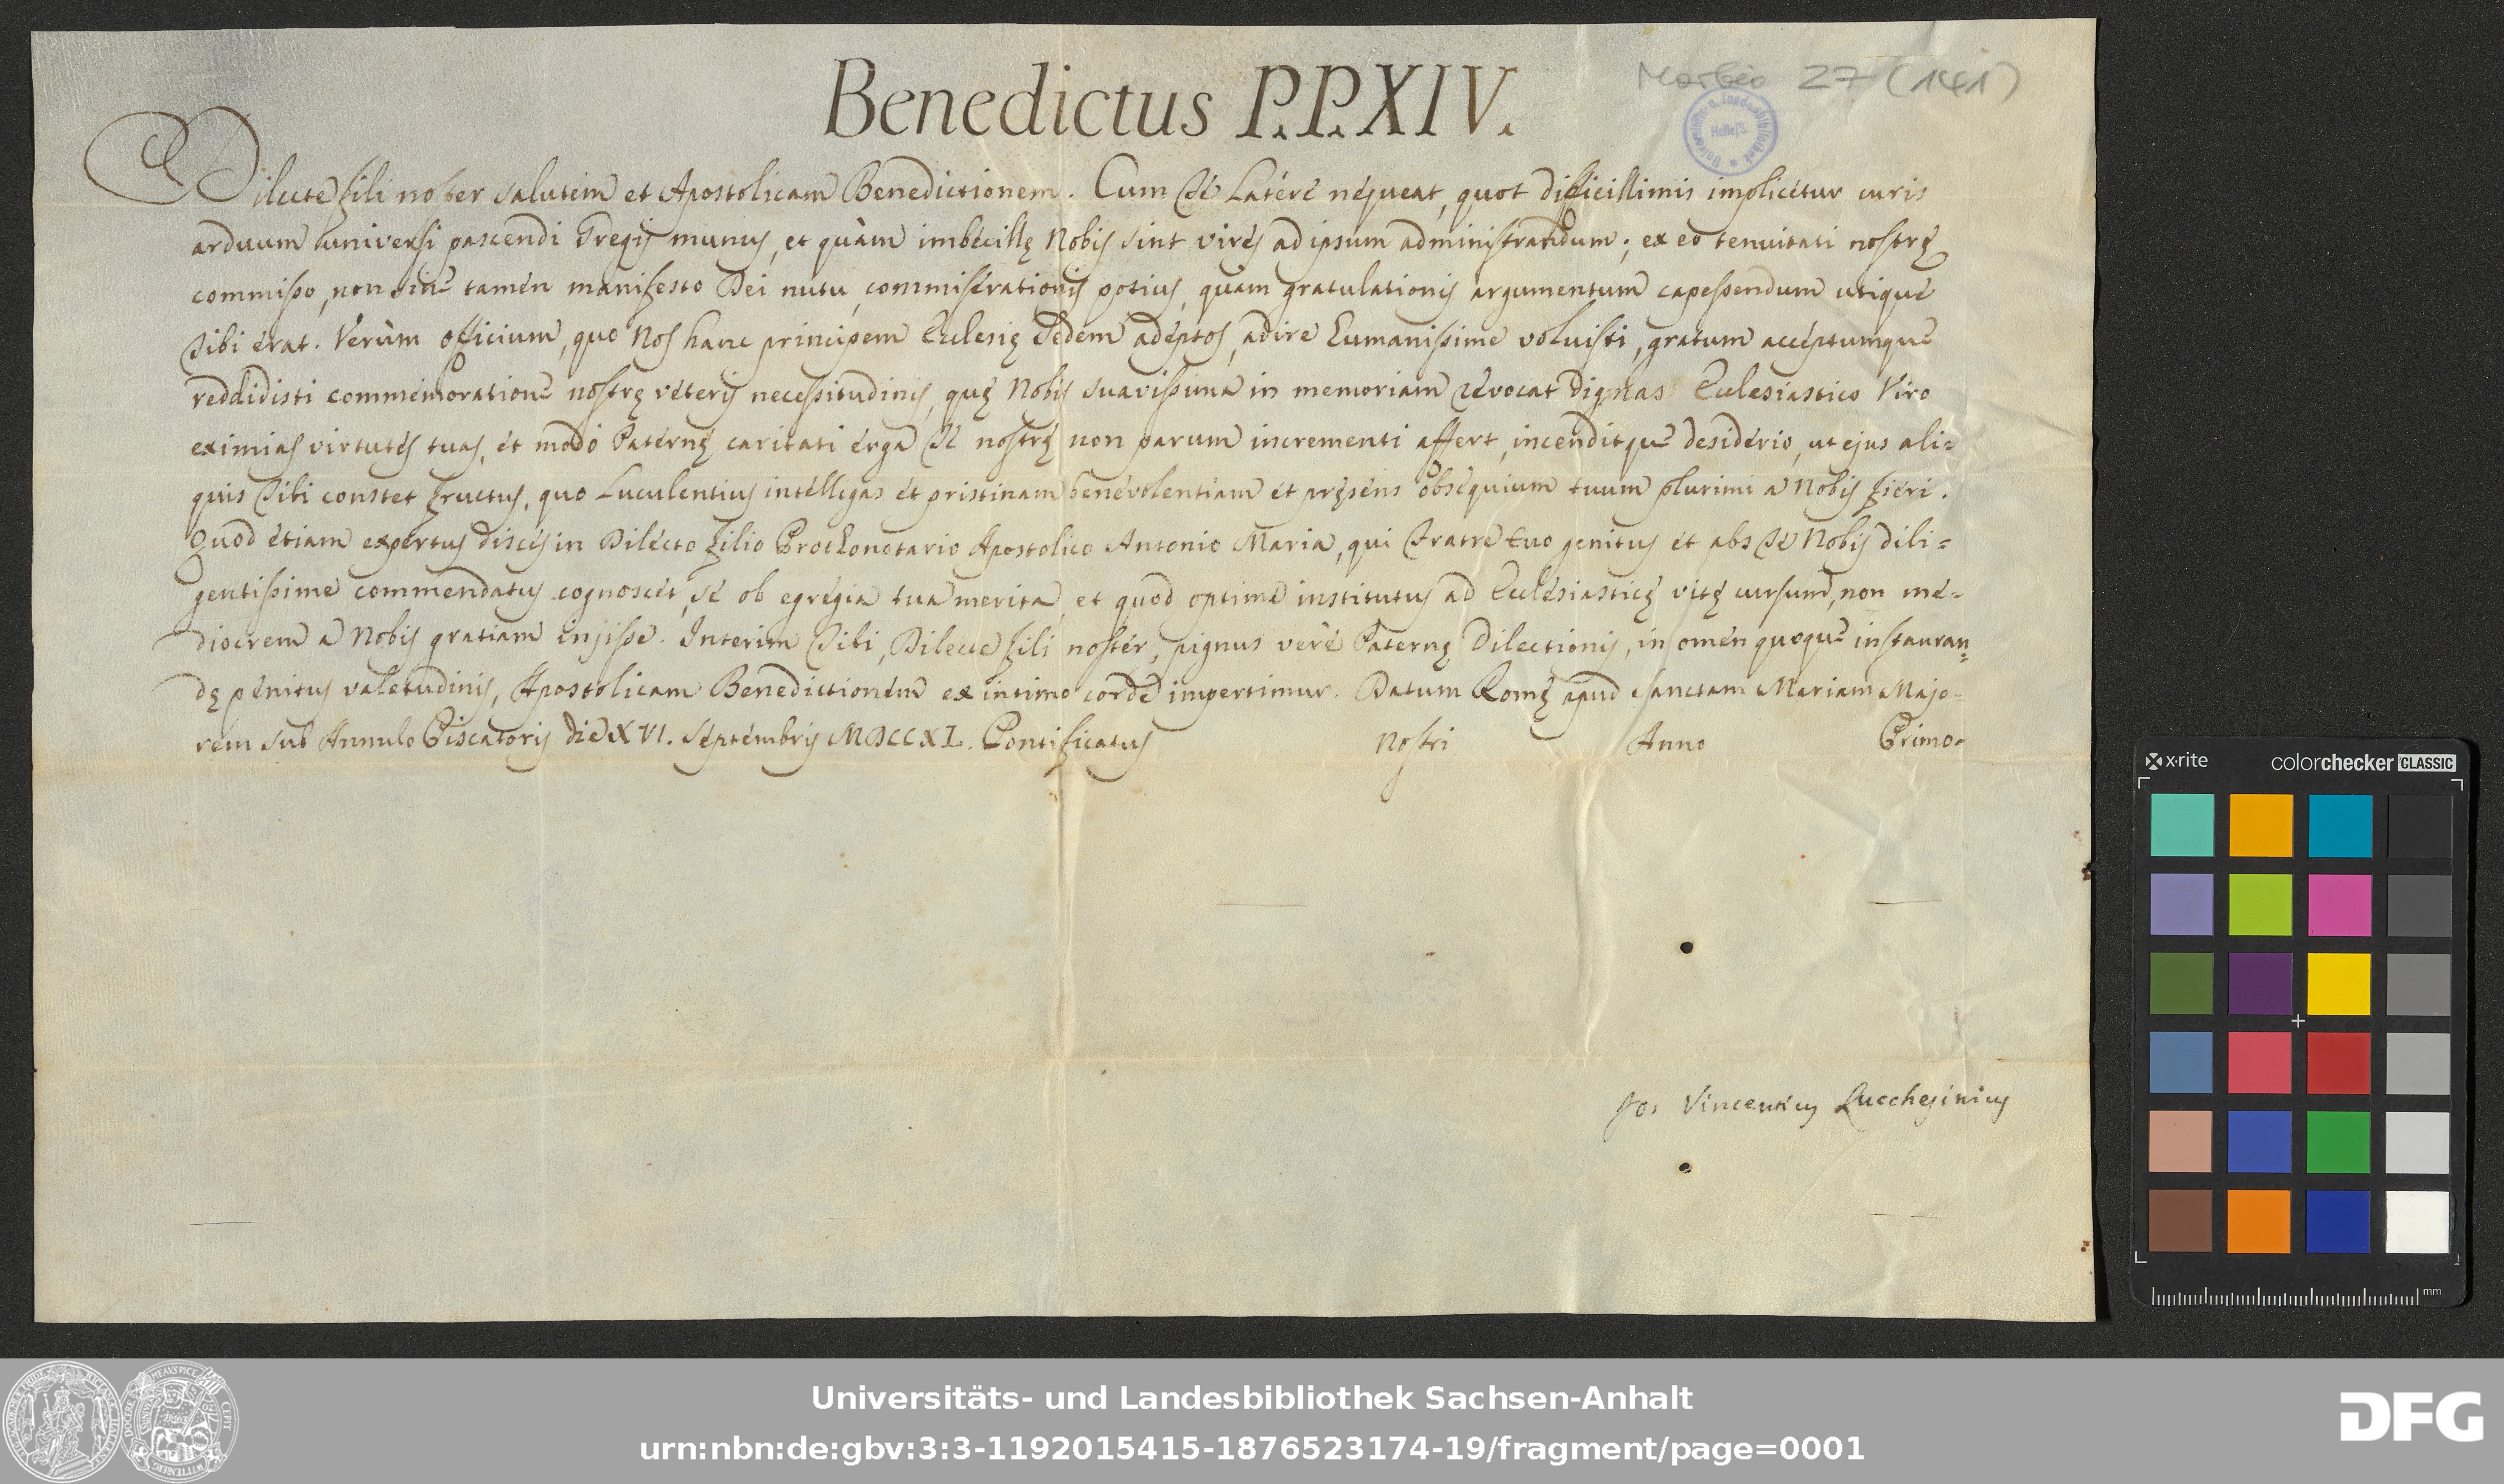 Benedictus P.P.XIV.
Morbio 27 (141)
Dilecte fili noster salutem et Apostolicam Benedictionem. Cum Te Latere nequeat, quot difficillimis implicetur curis
arduum universi pascendi Gregis munus, et quàm imbecillę Nobis sint vires ad ipsum administrandum; ex eo tenuitati nostrę
commisso, non sine tamen manifesto Dei nutu, commiserationis potius, quàm gratulationis argumentum capessendum utique
Tibi erat. Verùm officium, quo Nos hanc principem Ecclesię Sedem adeptos, adire humanissime voluisti, gratum acceptumque
reddidisti commemoratione nostrę veteris necessitudinis, quę Nobis suavissima in memoriam revocat dignas Ecclesiastico Viro
eximias virtutes tuas, et modò Paternę caritati erga Te nostrę non parum incrementi affert, incenditque desiderio, ut ejus ali=
quis Tibi constet fructus, quo Luculentius intelligas et pristinam benevolentiam et pręsens obsequium tuum plurimi a Nobis fieri.
Quod etiam expertus disces in Dilecto filio Prothonotario Apostolico Antonio Maria, qui Fratre tuo genitus et abs Te Nobis dili=
gentissime commendatus cognoscet, se ob egregia tua merita, et quod optime institutus ad Ecclesiasticę vitę cursum, non me-
diocrem a Nobis gratiam inijsse. Interim Tibi, Dilecte fili noster, pignus verè Paternę Dilectionis, in omen quoque instauran=
dę penitus valetudinis, Apostolicam Benedictionem ex intimo corde impertimur. Datum Romę apud Sanctam Mariam Majo-
rem sub Annulo Piscatoris die XVI. Septembris MDCCXL. Pontificatus nostri Anno Primo.
Jos Vincentius Lucchesinius
x·rite colorchecker CLASSIC
mm
Universitäts- und Landesbibliothek Sachsen-Anhalt
urn:nbn:de:gbv:3:3-1192015415-1876523174-19/fragment/page=0001
DFG